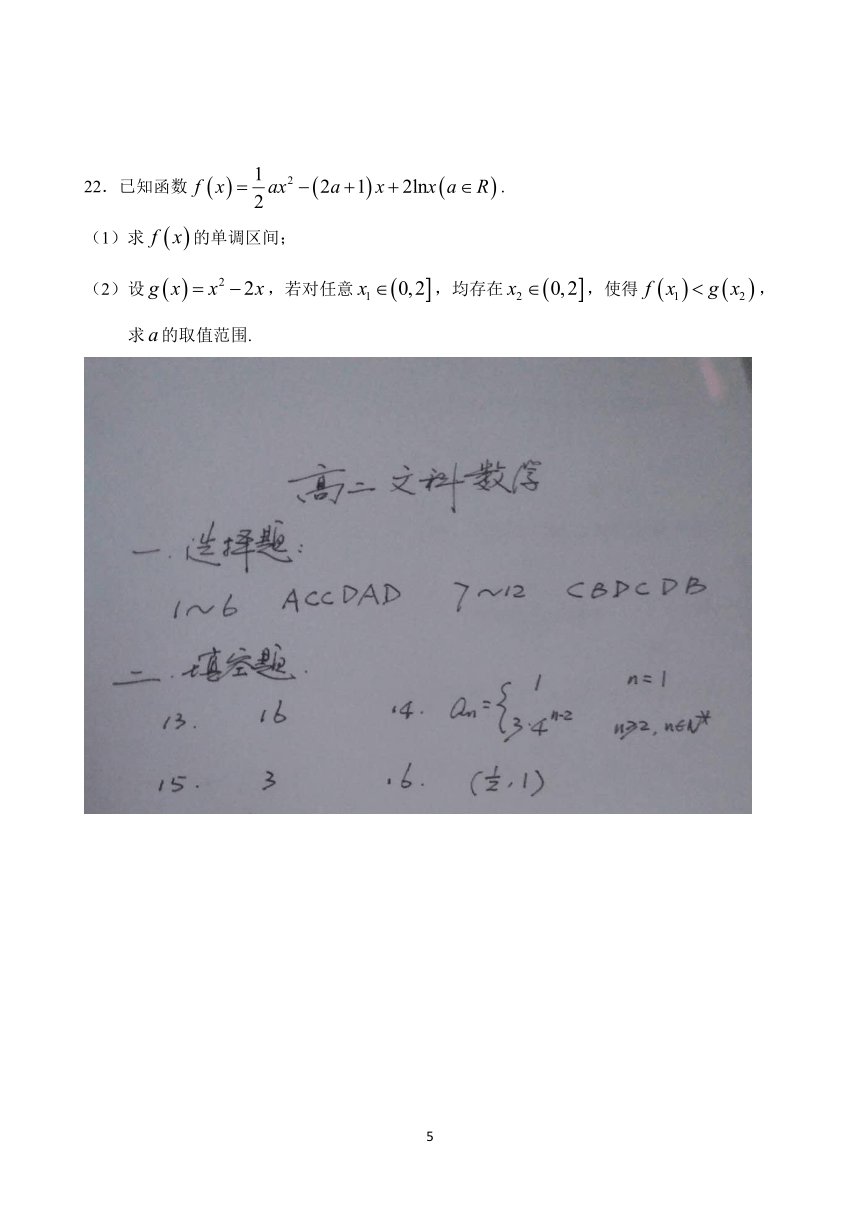 22．已知函数 f(x)=\frac{1}{2}ax^2-(2a+1)x+2lnx(a∈R).
（1）求 f(x)的单调区间；
（2）设 g(x)=x^2-2x，若对任意 x_1∈(0,2]，均存在 x_2∈(0,2]，使得 f(x_1)<g(x_2)，
求 a 的取值范围.
高二文科数学
一.选择题:
1~6 ACCDAD 7~12 CBDCDB
二.填空题.
13. 16 14. a_n={1 n=1
3·4^{n-2} n≥2, n∈N*
15. 3 16. (\frac{1}{2},1)
5